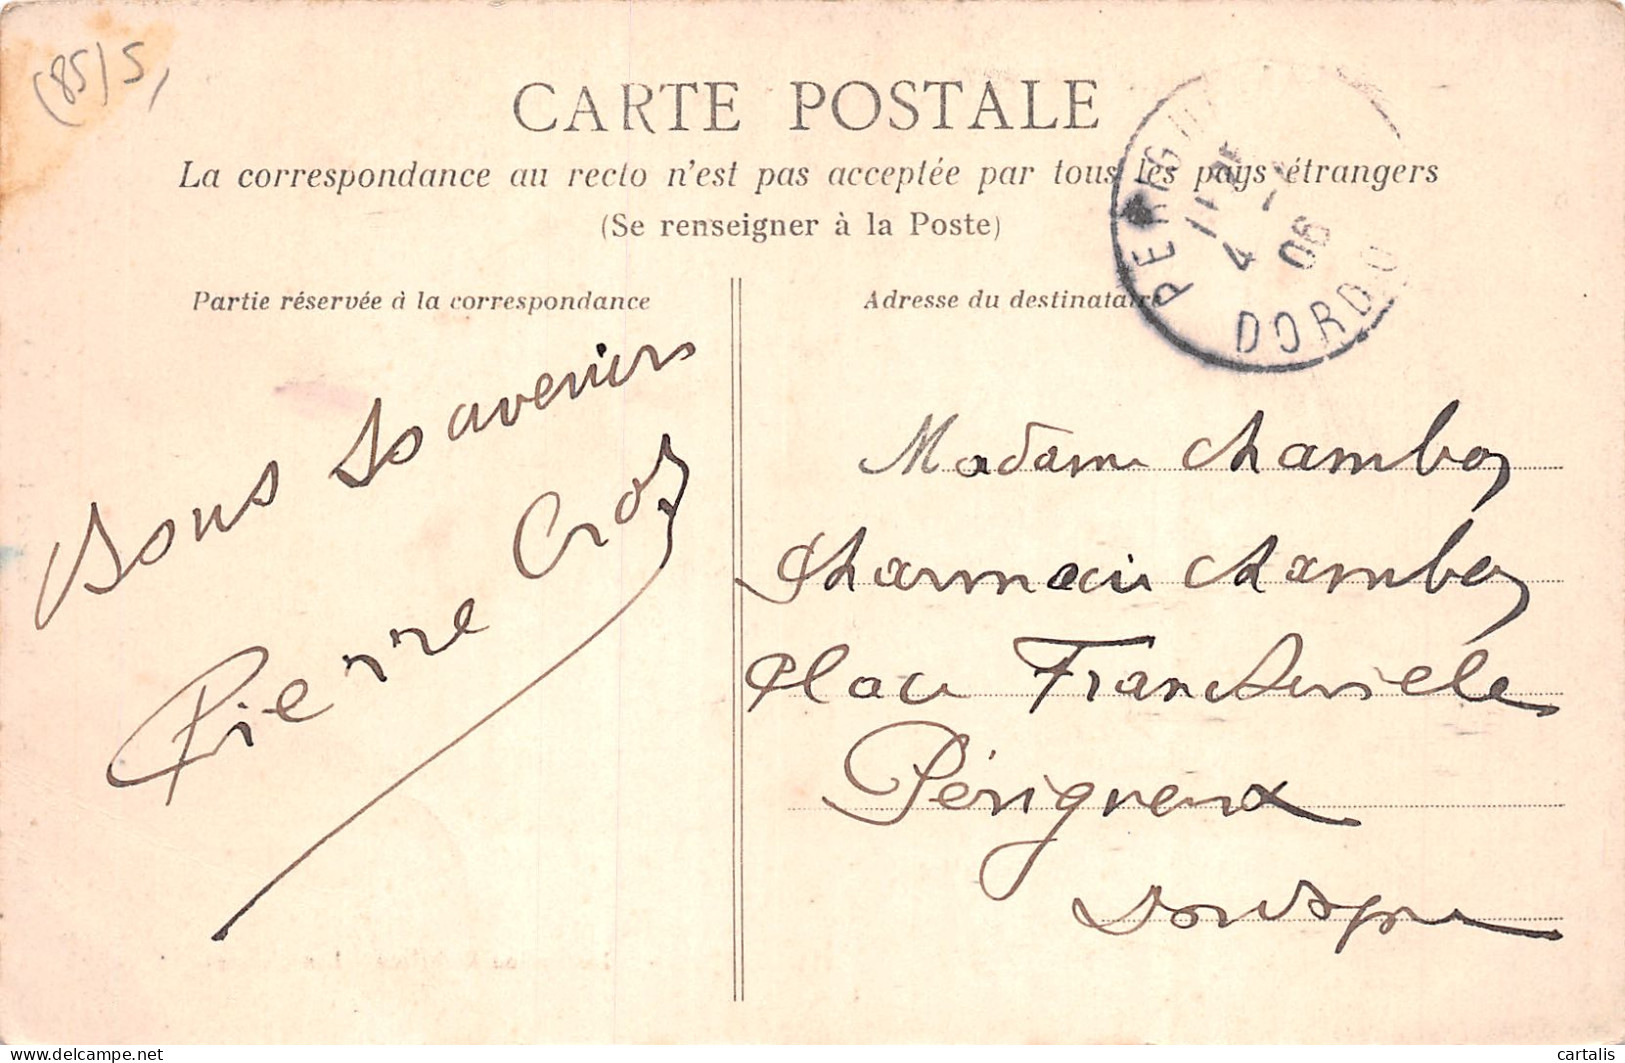 (85) 5,
CARTE POSTALE
La correspondance au recto n'est pas acceptée par tous les pays étrangers
(Se renseigner à la Poste)
Partie réservée à la correspondance
Bons Souvenirs
Pierre
Adresse du destinataire
PERIGU
4
06
DORDO
Madame Chambon
Pharmacie Chambon
Place Francheville
Périgueux
Dordogne
cartalis